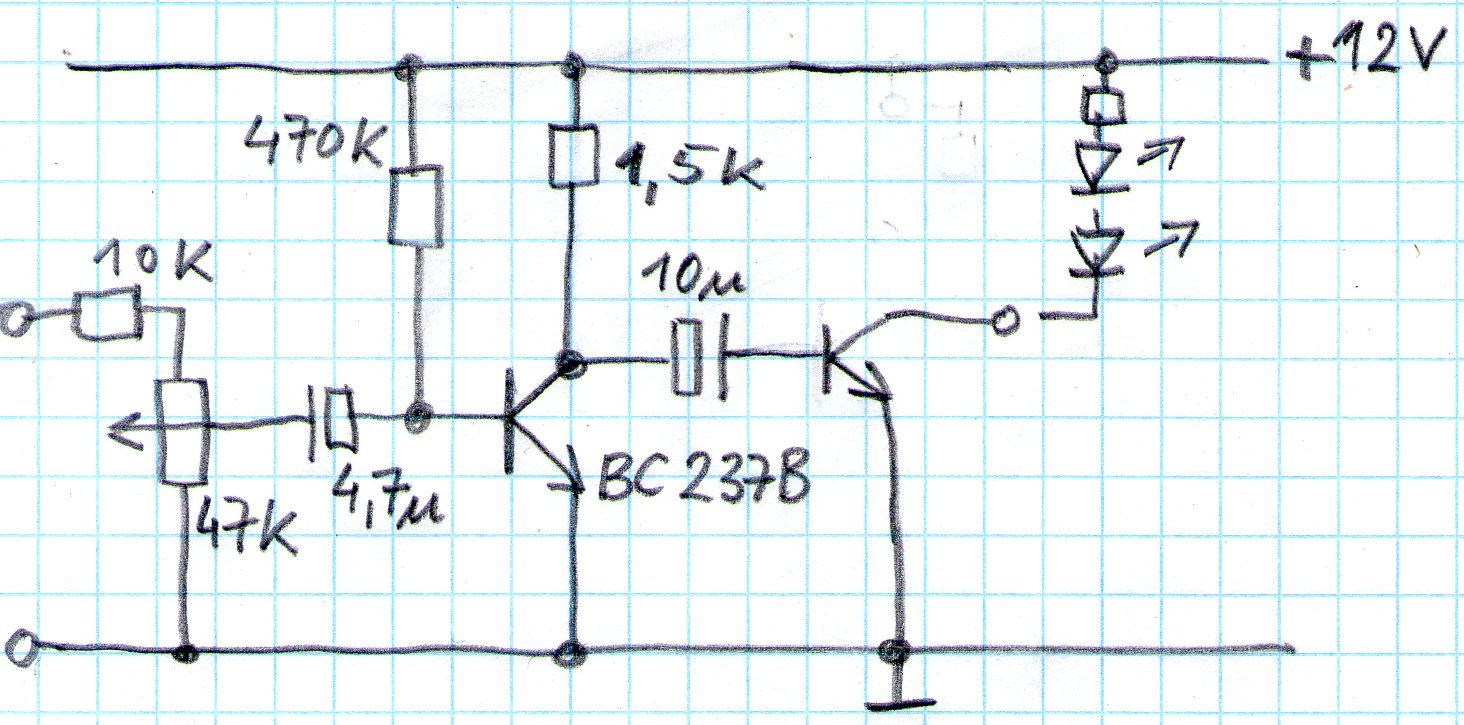 +12V
470K
1,5K
10K
10µ
BC237B
4,7µ
47K